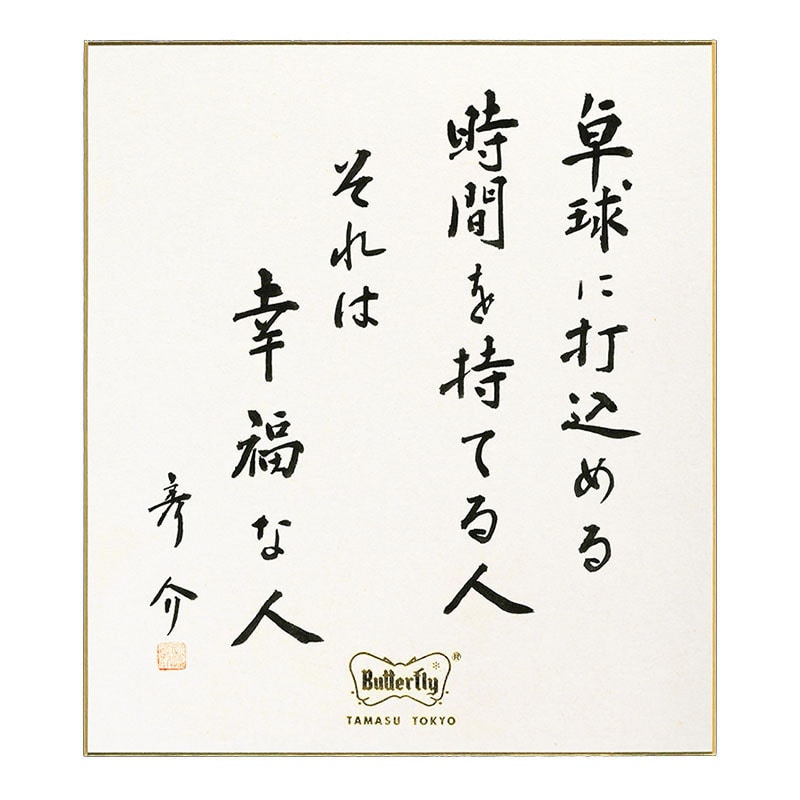 卓球に打込める
時間を持てる人
それは
幸福な人
彦介
Butterfly
®
TAMASU TOKYO